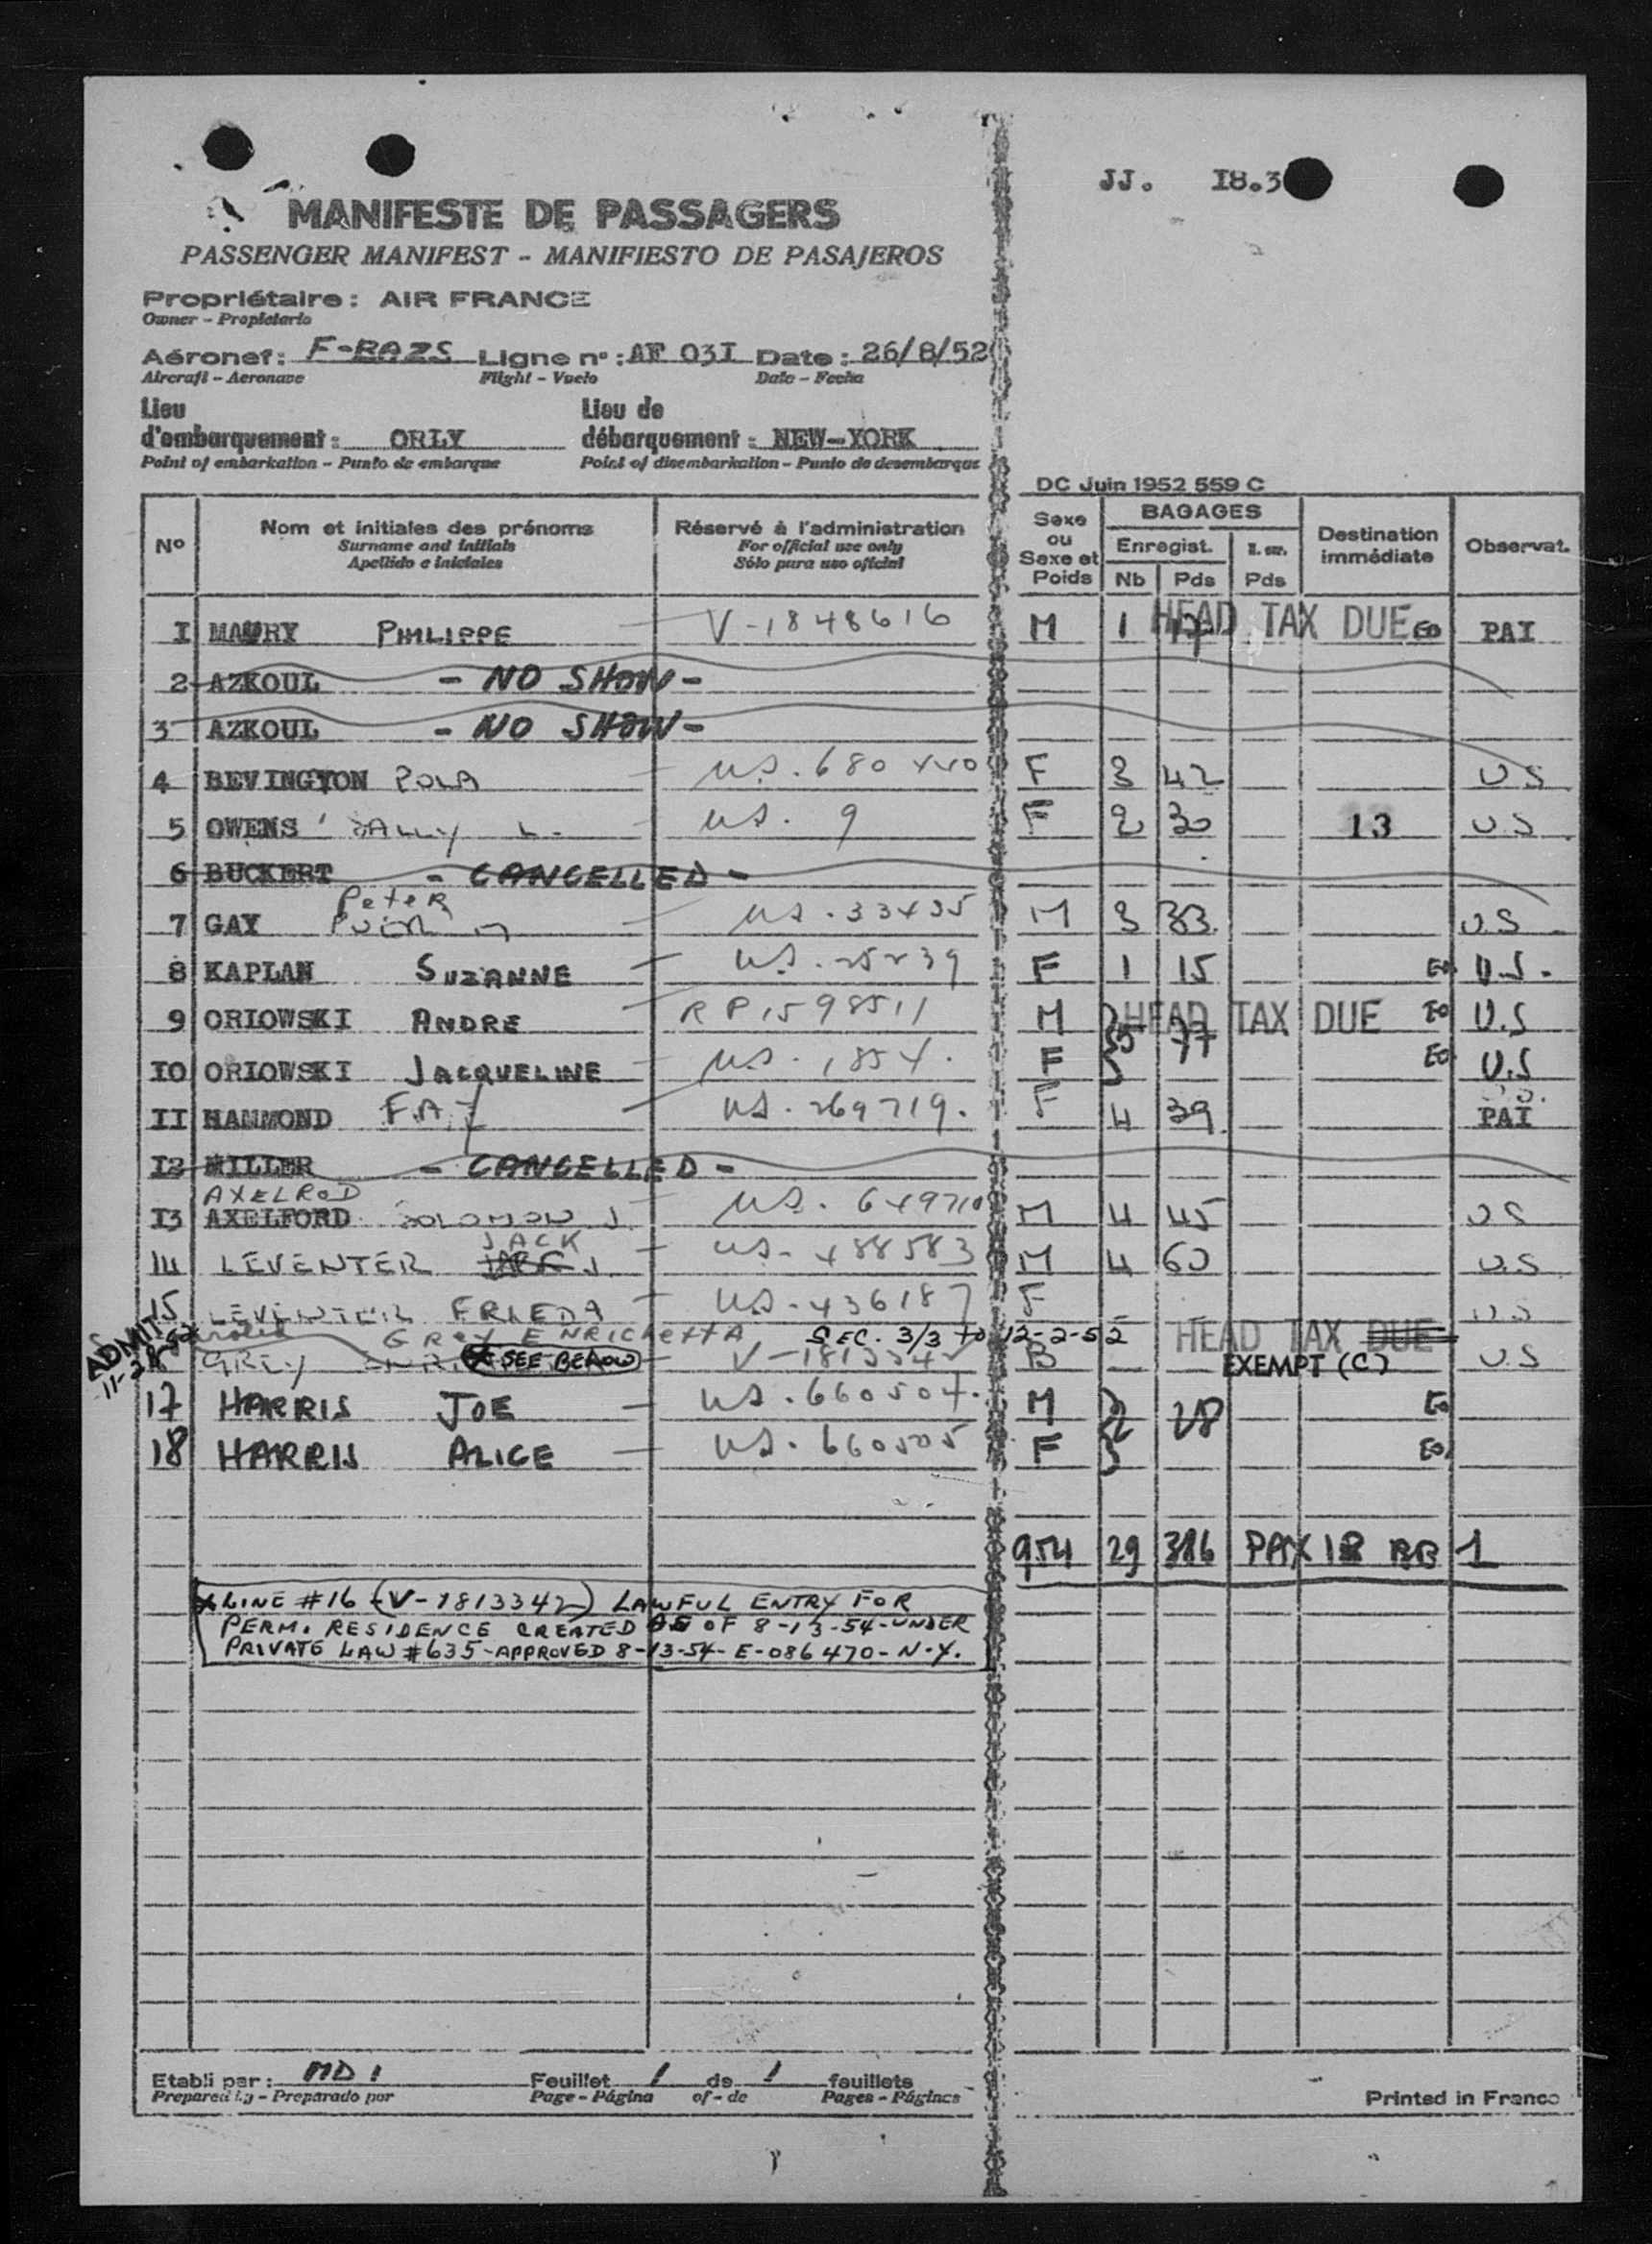 JJ. I8.3
MANIFESTE DE PASSAGERS
PASSENGER MANIFEST - MANIFIESTO DE PASAJEROS
Propriétaire : AIR FRANCE
Owner - Propietario
Aéronef : F-BAZS Ligne n° : AF 03I Date : 26/8/52
Aircraft - Aeronave Flight - Vuelo Date - Fecha
Lieu d'embarquement : ORLY Lieu de débarquement : NEW-YORK
Point of embarkation - Punto de embarque Point of disembarkation - Punto de desembarque
DC Juin 1952 559 C
N° Nom et initiales des prénoms Réservé à l'administration Sexe ou Sexe et Poids BAGAGES Enregist. Nb Pds Pds Destination immédiate Observat.
Surname and initials For official use only
Apellido e iniciales Sólo para uso oficial
I MAURY PHILIPPE V-1848616 M 1 17 HEAD TAX DUE EO PAI
2 AZKOUL - NO SHOW -
3 AZKOUL - NO SHOW -
4 BEVINGTON POLA US. 680440 F 3 42 US
5 OWENS SALLY L. US. 9 F 2 30 13 US
6 BUCKERT - CANCELLED -
Peter
7 GAY US. 33435 M 3 33 U.S
8 KAPLAN SUZANNE US. 25239 F 1 15 EO U.S.
9 ORIOWSKI ANDRE RP1598511 M HEAD TAX DUE EO U.S
IO ORIOWSKI JACQUELINE US. 1854. F 5 77 EO U.S
II HAMMOND FAY US. 269719. F 4 39 PAI
I2 MILLER - CANCELLED -
AXELROD
I3 AXELFORD SOLOMON J. US. 649710 M 4 45 US
JACK
14 LEVENTER J. US. 488583 M 4 60 U.S
15 LEVENTER FRIEDA US. 436187 F US
ADMIT GREY ENRICHETTA SEC. 3/3 TO 12-2-52 HEAD TAX DUE
GREY SEE BELOW V-1813342 B EXEMPT (C) U.S
17 HARRIS JOE US. 660504. M 2 28 EO
18 HARRIS ALICE US. 660505 F EO
954 29 386 PAX 12 BB 1
* LINE #16 (V-1813342) LAWFUL ENTRY FOR
PERM. RESIDENCE CREATED AS OF 8-13-54-UNDER
PRIVATE LAW #635-APPROVED 8-13-54-E-086470-N-Y.
Etabli par : MD 1 Feuillet 1 de 1 feuillets
Prepared by - Preparado por Page - Página of - de Pages - Páginas Printed in France